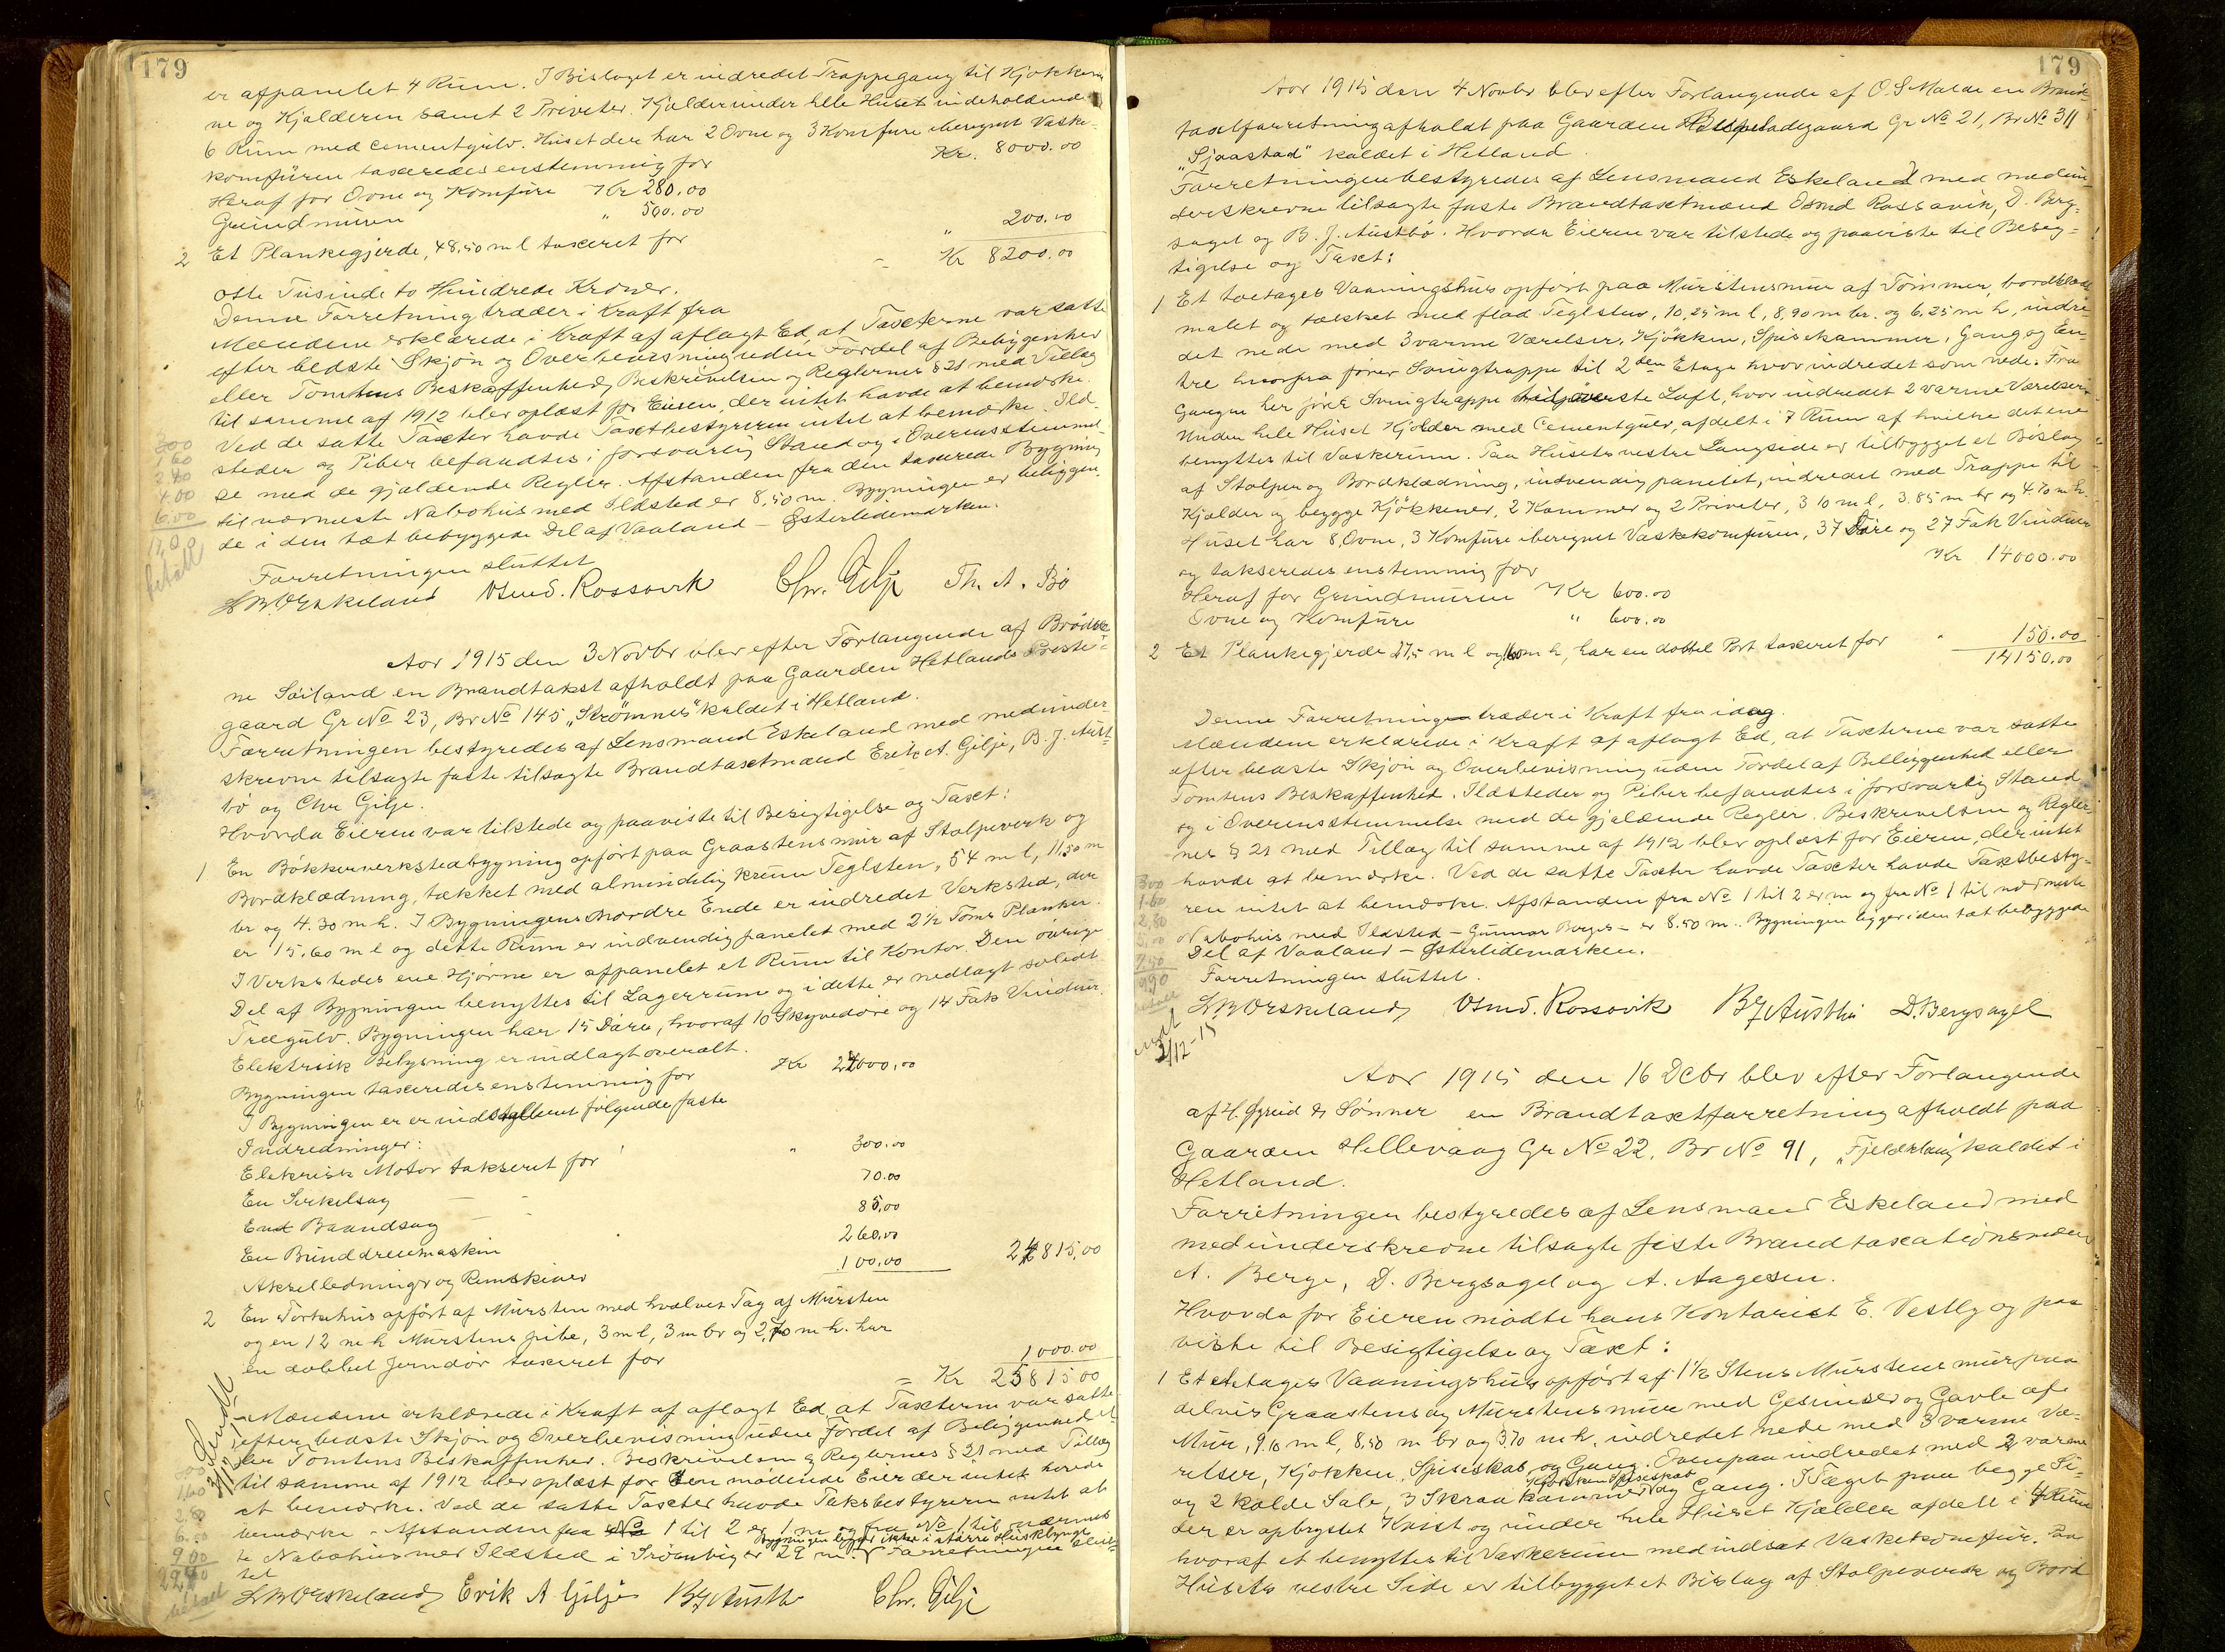 179
er afpanelet 4 Rum. I Bislaget er indredet Trappegang til Kjøkkene
ne og Kjælderen samt 2 Priveter. Kjælder under hele Huset indeholdende
6 Rum med Cementgulv. Huset der har 2 Ovne og 3 Komfure iberegnet Vaske-
komfüren taxeredes enstemmig for Kr. 8000.00
Heraf for Ovne og Komfüre Kr 280.00
Grundmuren " 500.00
2 Et Plankegjerde, 48,50 m l taxeret for " 200.00
= Kr 8200.00
otte Tusinde to Hundrede Kroner.
Denne Forretning træder i Kraft fra
Mændene erklærede i Kraft af aflagt Ed, at Taxterne var satte
efter bedste Skjøn og Overbevisning uden Fordel af Beliggenhed
eller Tomtens Beskaffenhed, Beskrivelsen og Reglernes § 21 med Tillæg
til samme af 1912 blev oplæst for Eieren, der intet havde at bemærke.
Ved de satte Taxter havde Taxtbestyreren intet at bemærke. Ild-
steder og Piber befandtes i forsvarlig Stand og i Overensstemmel-
se med de gjældende Regler. Afstanden fra den taxerede Bygning
til nærmeste Nabohus med Ildsted er 8,50 m. Bygningen er beliggen-
de i den tæt bebyggede Del af Vaaland - Østerlidemarken.
Forretningen sluttet
Osmd. Rossavik Chr. Gilje Th. A. Bø
Aar 1915 den 3 Novbr blev efter Forlangende af Brødre-
ne Søiland en Brandtakst afholdt paa Gaarden Hetlands Præste-
gaard Gr No 23, Br No 145 „Strømnes" kaldet i Hetland.
Forretningen bestyredes af Lensmand Eskeland med medunder-
skrevne tilsagte faste tilsagte Brandtaxtmænd Erik A. Gilje, B. J. Aust-
bø og Chr Gilje.
Hvorda Eieren var tilstede og paaviste til Besigtigelse og Taxt:
1 En Bøkkerverkstedbygning opført paa Graastensmur af Stolpeverk og
Bordklædning, tækket med almindelig krum Teglsten, 54 m l, 11,50 m
br og 4.30 m h. I Bygningens nordre Ende er indredet Verksted, der
er 15.60 m l og dette Rum er indvendig panelet med 2½ Toms Planker.
I Verkstedes ene Hjørne er afpanelet et Rum til Kontor. Den øvrige
Del af Bygningen benyttes til Lagerrum og i dette er nedlagt solidt
Trægulv. Bygningen har 15 Døre, hvoraf 10 Skyvedøre og 14 Fak Vinduer.
Elektrisk Belysning er indlagt overalt.
Bygningen taxeredes enstemmig for Kr 24000,00
I Bygningen er er indstalleret følgende faste
Indredninger:
Elektrisk Motor takseret for " 300.00
En Sirkelsag 70.00
End Baandsag 85,00
En Bunddreiemaskin 260,00
Akselledninger og Remskiver 100,00 24815,00
2 En Tørkehus opført af Mursten med hvælvet Tag af Mursten
og en 12 m h Murstens pibe, 3 m l, 3 m br og 2,70 m h. har
en dobbel Jerndør taxeret for 1000.00
= Kr 25815 00
Mændene erklærede i Kraft af aflagt Ed at Taxterne var satte
efter bedste Skjøn og Overbevisning uden Fordel af Beliggenhed el-
ler Tomtens Beskaffenhed. Beskrivelsen og Reglernes § 21 med Tillæg
til samme af 1912 blev oplæst for den mødende Eier der intet havde
at bemærke. Ved de satte Taxter havde Takstbestyreren intet at
bemærke. Afstanden fra No 1 til 2 er 1 m og fra No 1 til nærmes
Bygningen ligger ikke i større Husklynge
te Nabohus med Ildsted i Strømvig er 29 m. Forretningen slut-
tet
Erik A Gilje BJ Austbø Chr. Gilje
300
1.60
2.40
4.00
6.00
betalt
179
Aar 1915 den 4 Novbr blev efter Forlangende af O. S Malde en Brand-
taxtforretning afholdt paa Gaarden Bispeladegaard Gr No 21, Br No 311
„Sjaastad" kaldet i Hetland.
Forretningen bestyredes af Lensmand Eskeland med medun-
derskrevne tilsagte faste Brandtaxtmænd Osmd Rossavik, D. Berg-
sagel og B. J. Austbø. Hvorda Eieren var tilstede og paaviste til Besig-
tigelse og Taxt:
1 Et toetages Vaaningshus opført paa Murstensmur af Tømmer, bordklædt
malet og tækket med flad Teglsten, 10,25 m l, 8,90 m br. og 6,25 m h, indre
det nede med 3 varme Værelser, Kjøkken, Spisekammer, Gang og En-
tre hvorfra fører Svingtrappe til 2den Etage hvor indredet som nede. Fra
Gangen her fører Svingtrappe til øverste Loft, hvor indredet 2 varme Værelser
Under hele Huset Kjelder med Cementgulv, afdelt i 7 Rum af hvilke det ene
benyttes til Vaskerum. Paa Husets vestre Langside er tilbygget et Bislag
af Stolper og Bordklædning, indvendig panelet, indredet med Trappe til
Kjælder og begge Kjøkkener, 2 Kammer og 2 Priveter, 3 10 m l, 3.85 m br og 4.70 m h.
Huset har 8 Ovne, 3 Komfure iberegnet Vaskekomfuren, 37 Døre og 27 Fak Vinduer
og takseredes enstemmig for Kr 14000.00
Heraf for Grundmuren Kr 600.00
Ovne og Komfüre " 600.00
2 Et Plankegjerde 27,5 m l og 1,60 m h, har en dobbel Port taxeret for " 150.00
14150.00
Denne Forretningen træder i Kraft fra idag.
Mændene erklærede i Kraft af aflagt Ed, at Taxterne var satte
efter bedste Skjøn og Overbevisning uden Fordel af Beliggenhed eller
Tomtens Beskaffenhed. Ildsteder og Piber befandtes i forsvarlig Stand
og i Overensstemmelse med de gjeldende Regler. Beskrivelsen og Regler-
nes § 21 med Tillæg til samme af 1912 blev oplæst for Eieren, der intet
havde at bemærke. Ved de satte Taxter havde Taxter havde Taxtbesty-
ren intet at bemærke. Afstanden fra No 1 til 2 er m og fra No 1 til nærmeste
Nabohus med Ildsted - Gunnar Berges - er 8.50 m. Bygningen ligger i den tæt bebyggede
Del af Vaaland - Østerlidemarken.
Forretningen sluttet.
Osmd. Rossavik BJ Austbø D. Bergsagel
2/12-15
Aar 1915 den 16 Dcbr blev efter Forlangende
af H. Øgreid & Sønner en Brandtaxtforretning afholdt paa
Gaarden Hillevaag Gr No 22, Br No 91, „Fjeldrang" kaldet i
Hetland.
Forretningen bestyredes af Lensmand Eskeland med
medunderskrevne tilsagte faste Brandtaxationsmænd
A. Berge, D. Bergsagel og A. Aagesen.
Hvorda for Eieren mødte hans Kontorist E. Vestly og paa
viste til Besigtigelse og Taxt:
1 Et etages Vaaningshus opført af 1½ Stens Murstens mur paa
delvis Graastens og Murstensmur med Gesimser og Gavle af
Mur, 9.10 m l, 8,50 m br og 3.70 m h, indredet nede med 3 varme Væ-
relser, Kjøkken, Spiseskab og Gang. Ovenpaa indredet med 2 varme
Kjøkken Spiseskab
og 2 kolde Sale, 3 Skraakammer og Gang. I Taget paa begge Si-
der er opbygget Kvist og under hele Huset Kjælder afdelt i 4 Rum
hvoraf et benyttes til Vaskerum med indsat Vaskekomfur. Paa
Husets vestre Side er tilbygget et Bislag af Stolpeverk og Bord